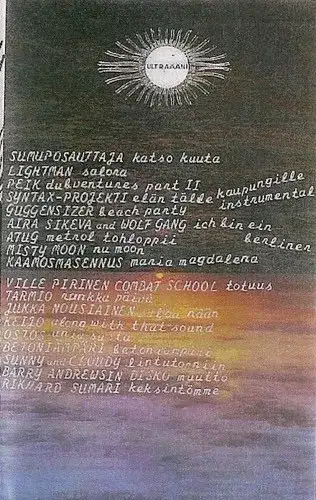 ULTRAÄÄNI
SUMUPOSAUTTAJA katso kuuta
LIGHTMAN salora
PEIK dubventures part II
SYNTAX-PROJEKTI elän tälle kaupungille
instrumental
GUGGENSIZER beach party
AIRA SIKEVA and WOLFGANG ich bin ein
berliner
ATUG metrol tohloppii
MISTY MOON nu moon
KAAMOSMASENNUS maria magdalena
VILLE PIRINEN COMBAT SCHOOL totuus
TARMIO rankka päivä
JUKKA NOUSIAINEN nään
KEIJO along with that sound
BETONIJÄMPÄRI
SUNNY and CLOUDY lintutorniin
BARRY ANDREWSIN DISKO muutto
RIKHARD SUMARI keksintömme